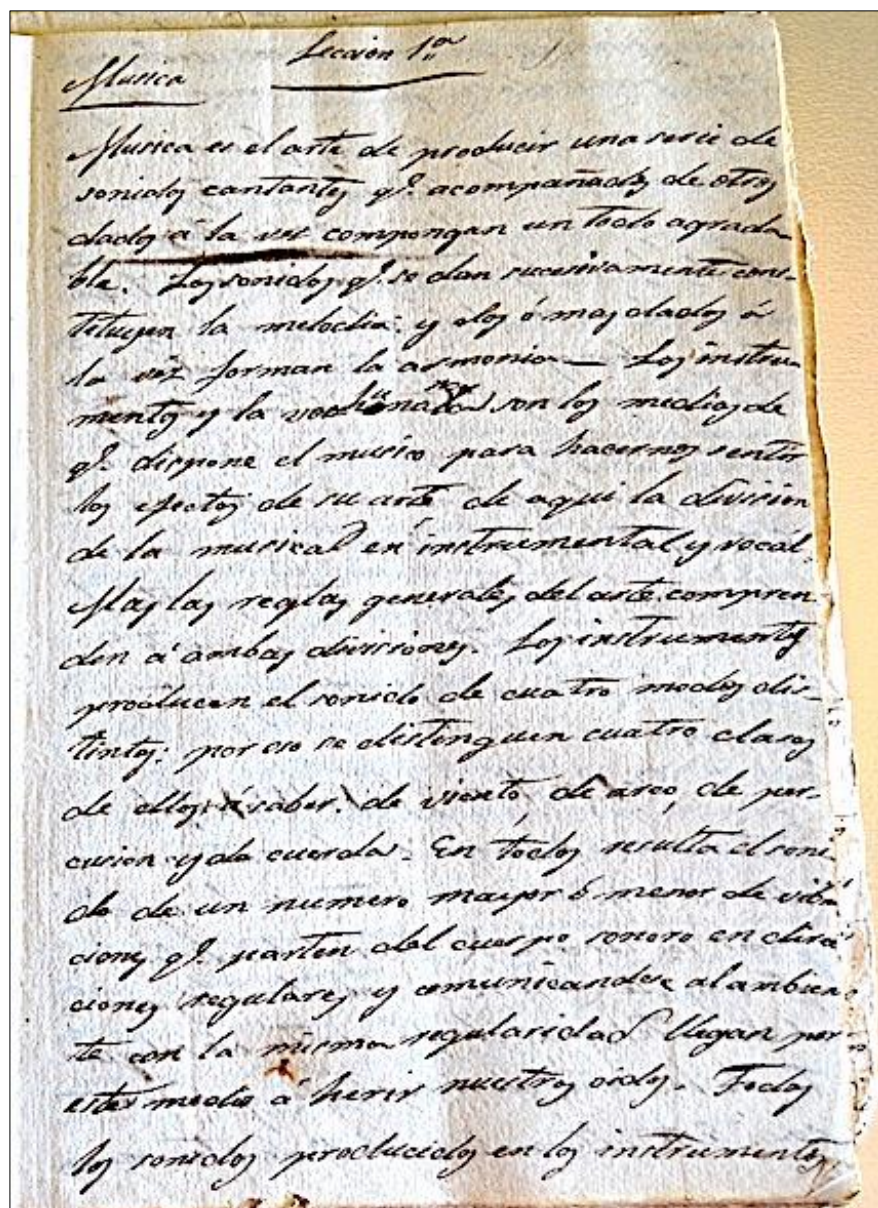 Leccion 1ª
Musica
Musica es el arte de producir una serie de
sonidos cantantes qᵉ. acompañados de otros
dados á la vez compongan un todo agrada-
ble. Los sonidos qᵉ. se dan sucesivamente cons-
tituyen la melodia; y dos ó mas dados á
la vez forman la armonia — Los instru-
mentos y la voz humana son los medios de
qᵉ. dispone el musico para hacernos sentir
los efectos de su arte de aqui la division
de la musica en instrumental y vocal.
Mas las reglas generales del arte compren
den á ambas divisiones. Los instrumentos
producen el sonido de cuatro modos dis-
tintos: por eso se distinguen cuatro clases
de ellos á saber: de viento, de arco, de per-
cusion y de cuerda. En todos resulta el soni-
do de un numero mayor ó menor de vibra
ciones qᵉ. parten del cuerpo sonoro en direc
ciones regulares y comunicandose al ambien
te con la misma regularidad llegan por
este medio á herir nuestros oidos. Todos
los sonidos producidos en los instrumentos